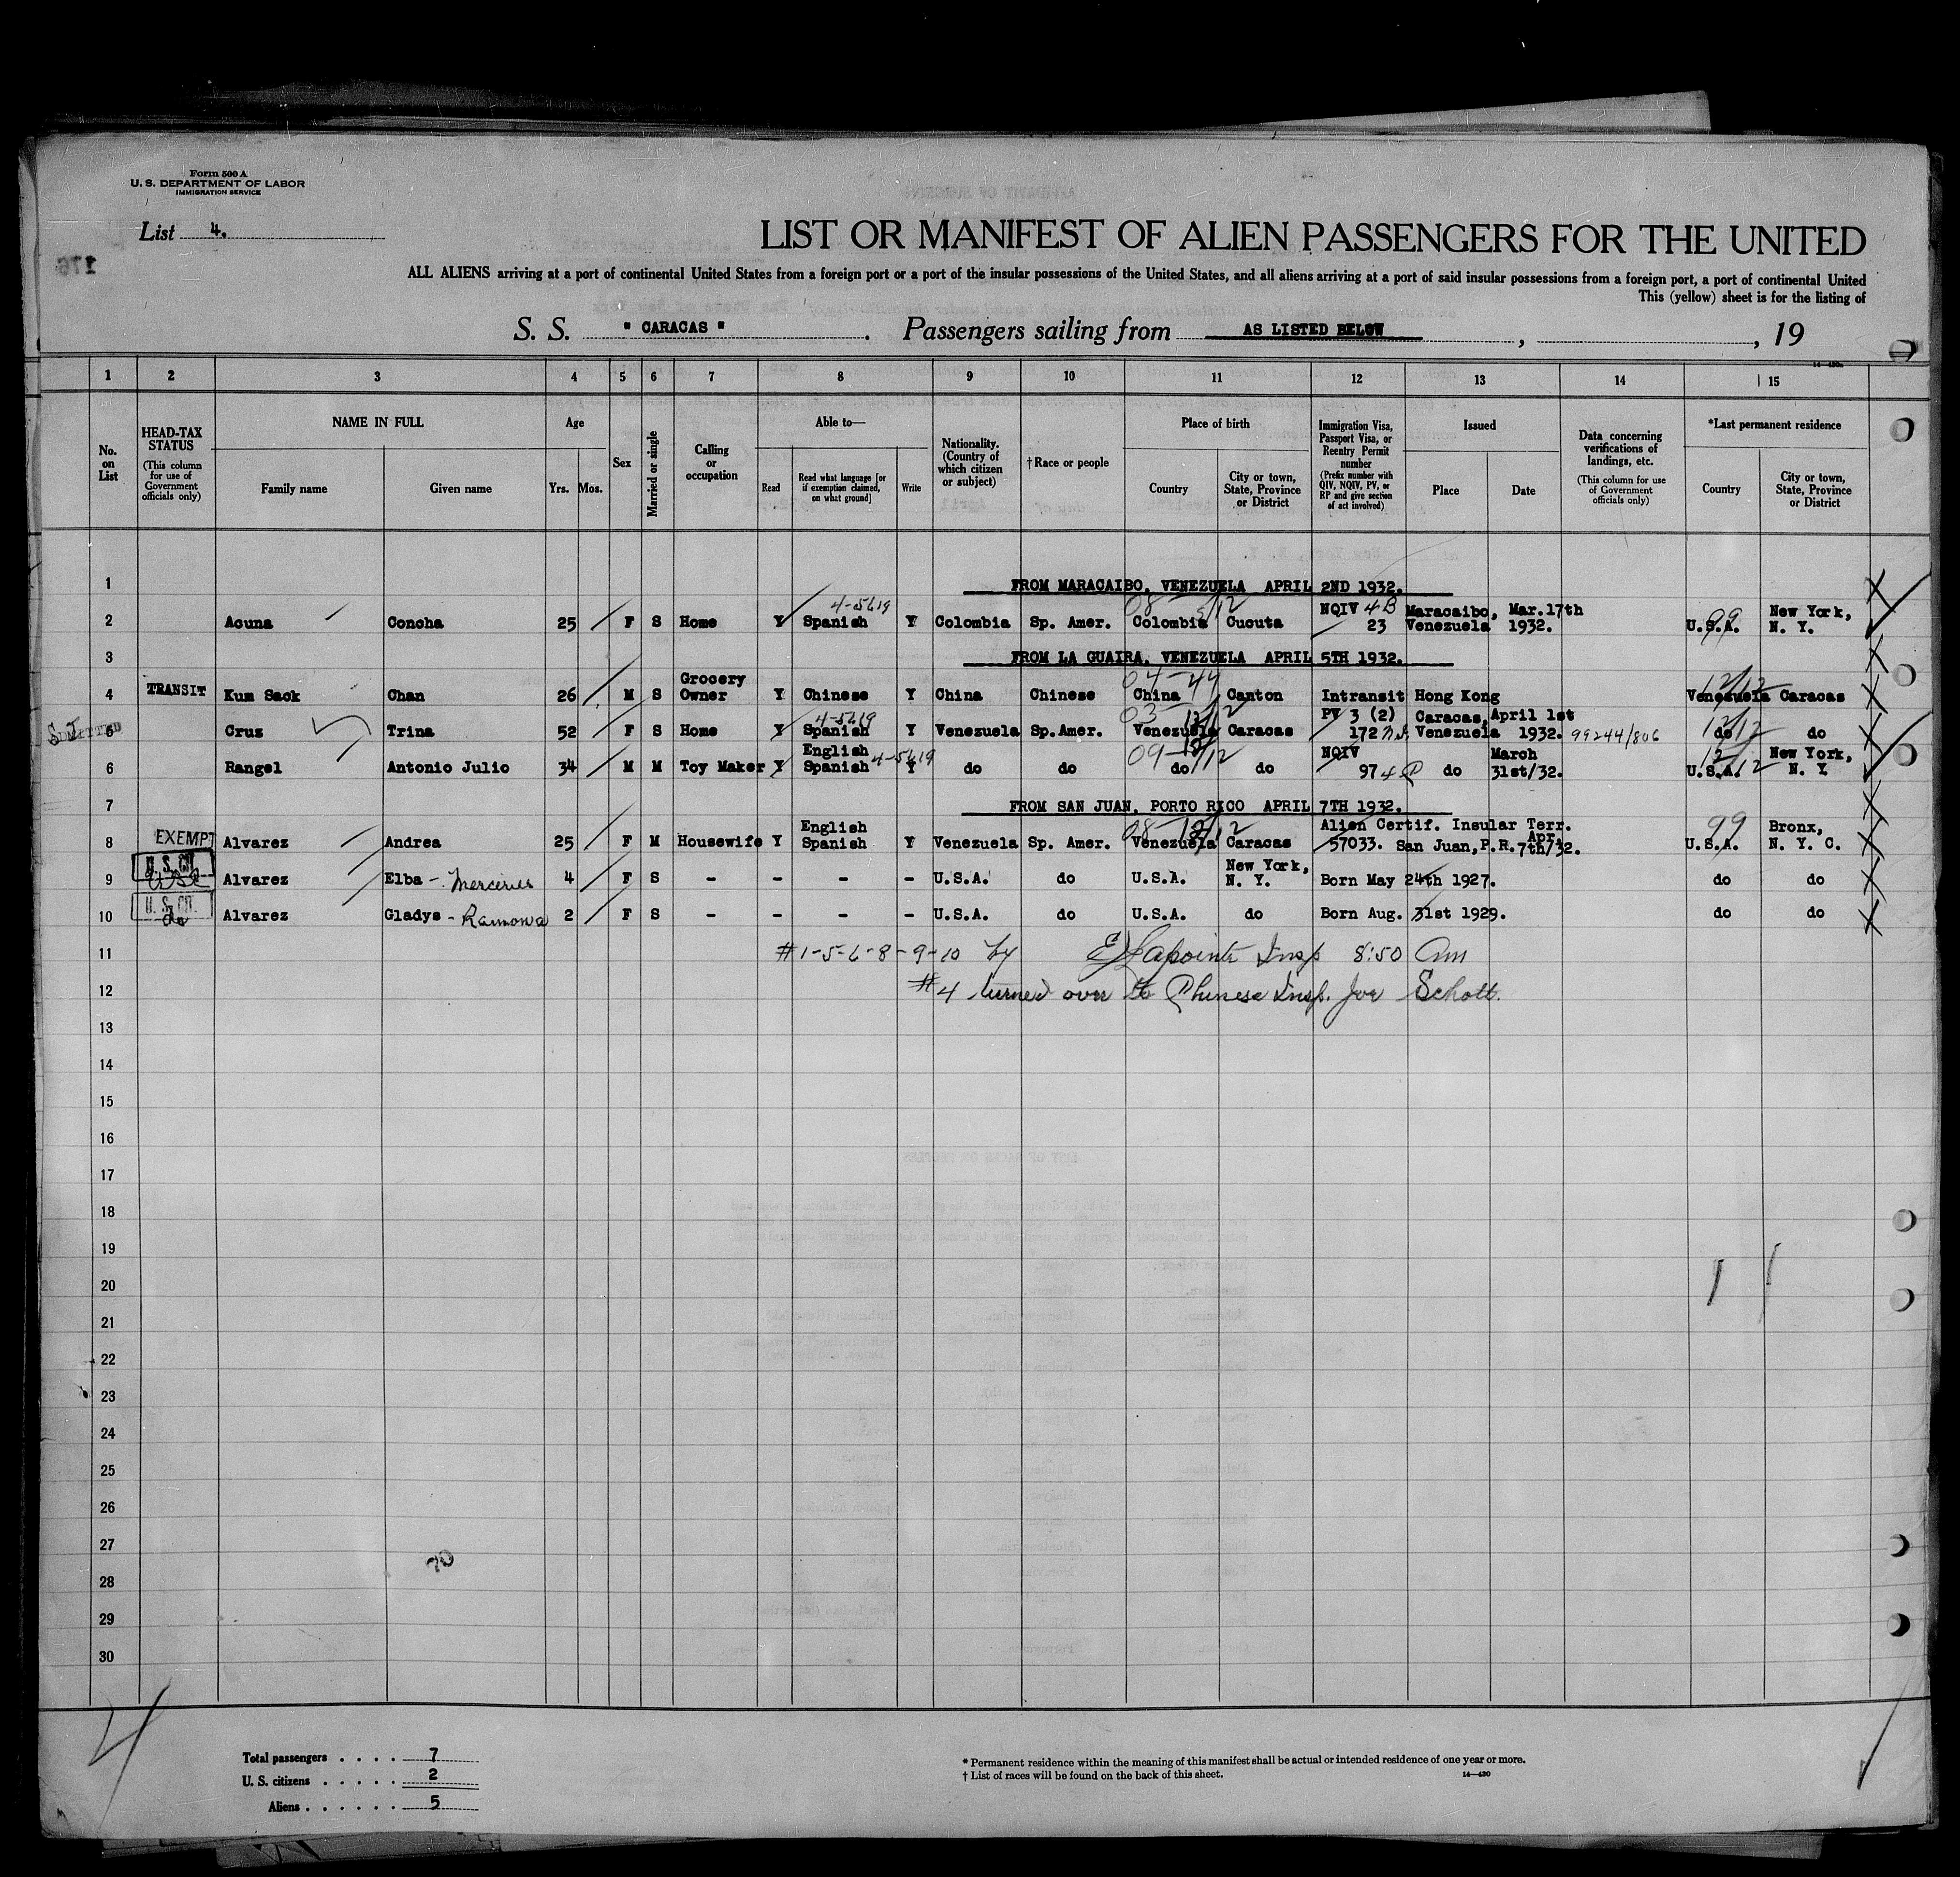 Form 500 A
U. S. DEPARTMENT OF LABOR
IMMIGRATION SERVICE
List 4.
176
LIST OR MANIFEST OF ALIEN PASSENGERS FOR THE UNITED
ALL ALIENS arriving at a port of continental United States from a foreign port or a port of the insular possessions of the United States, and all aliens arriving at a port of said insular possessions from a foreign port, a port of continental United
This (yellow) sheet is for the listing of
S. S. " CARACAS " . Passengers sailing from AS LISTED BELOW , , 19
14—430a
1 2 3 4 5 6 7 8 9 10 11 12 13 14 15
No. on List
HEAD-TAX STATUS (This column for use of Government officials only)
NAME IN FULL Family name Given name
Age Yrs. Mos.
Sex
Married or single
Calling or occupation
Able to— Read Read what language [or if exemption claimed, on what ground] Write
Nationality. (Country of which citizen or subject)
†Race or people
Place of birth Country City or town, State, Province or District
Immigration Visa, Passport Visa, or Reentry Permit number (Prefix number with QIV, NQIV, PV, or RP and give section of act involved)
Issued Place Date
Data concerning verifications of landings, etc. (This column for use of Government officials only)
*Last permanent residence Country City or town, State, Province or District
1 FROM MARACAIBO, VENEZUELA APRIL 2ND 1932.
2 Acuna Concha 25 F S Home Y 4-5619 Spanish Y Colombia Sp. Amer. Colombia Cucuta NQIV 4B 23 Maracaibo, Venezuela Mar.17th 1932. 99 U.S.A. New York, N. Y.
3 FROM LA GUAIRA, VENEZUELA APRIL 5TH 1932.
4 TRANSIT Kum Sack Chan 26 M S Grocery Owner Y Chinese Y China Chinese 04-44 China Canton Intransit Hong Kong 12/12 Venezuela Caracas
5 Cruz Trina 52 F S Home Y 4-5619 Spanish Y Venezuela Sp.Amer. Venezuela Caracas PV 3 (2) 172 Caracas, Venezuela April 1st 1932. 99244/806 12/12 do do
6 Rangel Antonio Julio 34 M M Toy Maker Y English Spanish 4-5619 Y do do do do NQIV 97 do March 31st/32. 12/12 U.S.A. New York, N. Y.
7 FROM SAN JUAN, PORTO RICO APRIL 7TH 1932.
8 EXEMPT Alvarez Andrea 25 F M Housewife Y English Spanish Y Venezuela Sp. Amer. Venezuela Caracas Alien Certif. Insular Terr. 57033. San Juan, P.R. Apr. 7th/32. 99 U.S.A. Bronx, N. Y. C.
9 Alvarez Elba - 4 F S - - - - U.S.A. do U.S.A. New York, N. Y. Born May 24th 1927. do do
10 do Alvarez Gladys - Ramona 2 F S - - - - U.S.A. do U.S.A. do Born Aug. 31st 1929. do do
11 #1-5-6-8-9-10 by E Lapointe Insp 8:50 Am
12 #4 turned over to Chinese Insp. Joe Schott.
13
14
15
16
17
18
19
20
21
22
23
24
25
26
27
28
29
30
4
Total passengers . . . . 7
U. S. citizens . . . . . 2
Aliens . . . . . . 5
* Permanent residence within the meaning of this manifest shall be actual or intended residence of one year or more.
† List of races will be found on the back of this sheet.
14—430